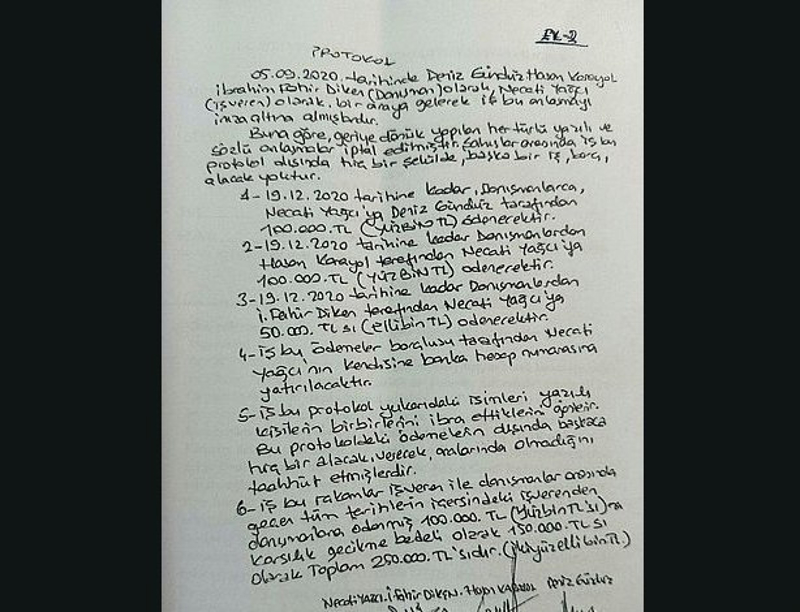 EK-2
PROTOKOL
05.09.2020. tarihinde Deniz Gündüz Hasan Karayol
İbrahim Fahir Diken (Danışman) olarak, Necati Yağcı
(işveren) olarak, bir araya gelerek iş bu anlaşmayı
imza altına almışlardır.
Buna göre, geriye dönük yapılan her türlü yazılı ve
sözlü anlaşmalar iptal edilmiştir. Şahıslar arasında iş bu
protokol dışında hiç bir şekilde, başka bir iş, borç,
alacak yoktur.
1-19.12.2020 tarihine kadar, Danışmanlarca,
Necati Yağcı'ya Deniz Gündüz tarafından
100.000.TL (YÜZBİN TL) ödenecektir.
2-19.12.2020 tarihine kadar Danışmanlardan
Hasan Karayol tarafından Necati Yağcı'ya
100.000.TL (YÜZBİN TL) ödenecektir.
3-19.12.2020 tarihine kadar Danışmanlardan
İ. Fahir Diken tarafından Necati Yağcı'ya
50.000.TL sı (ellibin TL) ödenecektir.
4-iş bu ödemeler borçlusu tarafından Necati
Yağcı'nın kendisine banka hesap numarasına
yatırılacaktır.
5-iş bu protokol yukarıdaki isimleri yazılı
kişilerin birbirlerini ibra ettiklerin gösterir.
Bu protokoldeki ödemelerin dışında başkaca
hiç bir alacak, verecek, aralarında olmadığını
taahhüt etmişlerdir.
6-iş bu rakamlar işveren ile danışmanlar arasında
geçen tüm tarihlerin içersindeki işverenden
danışmanlara ödenmiş 100.000.TL (Yüzbin TL'sı)na
karşılık gecikme bedeli olarak 150.000.TL sı
olarak Toplam 250.000.TL'sıdır. (ikiyüzellibin TL.)
Necati YAĞCI. İ. Fahir DİKEN. Hasan KARAYOL Deniz Gündüz